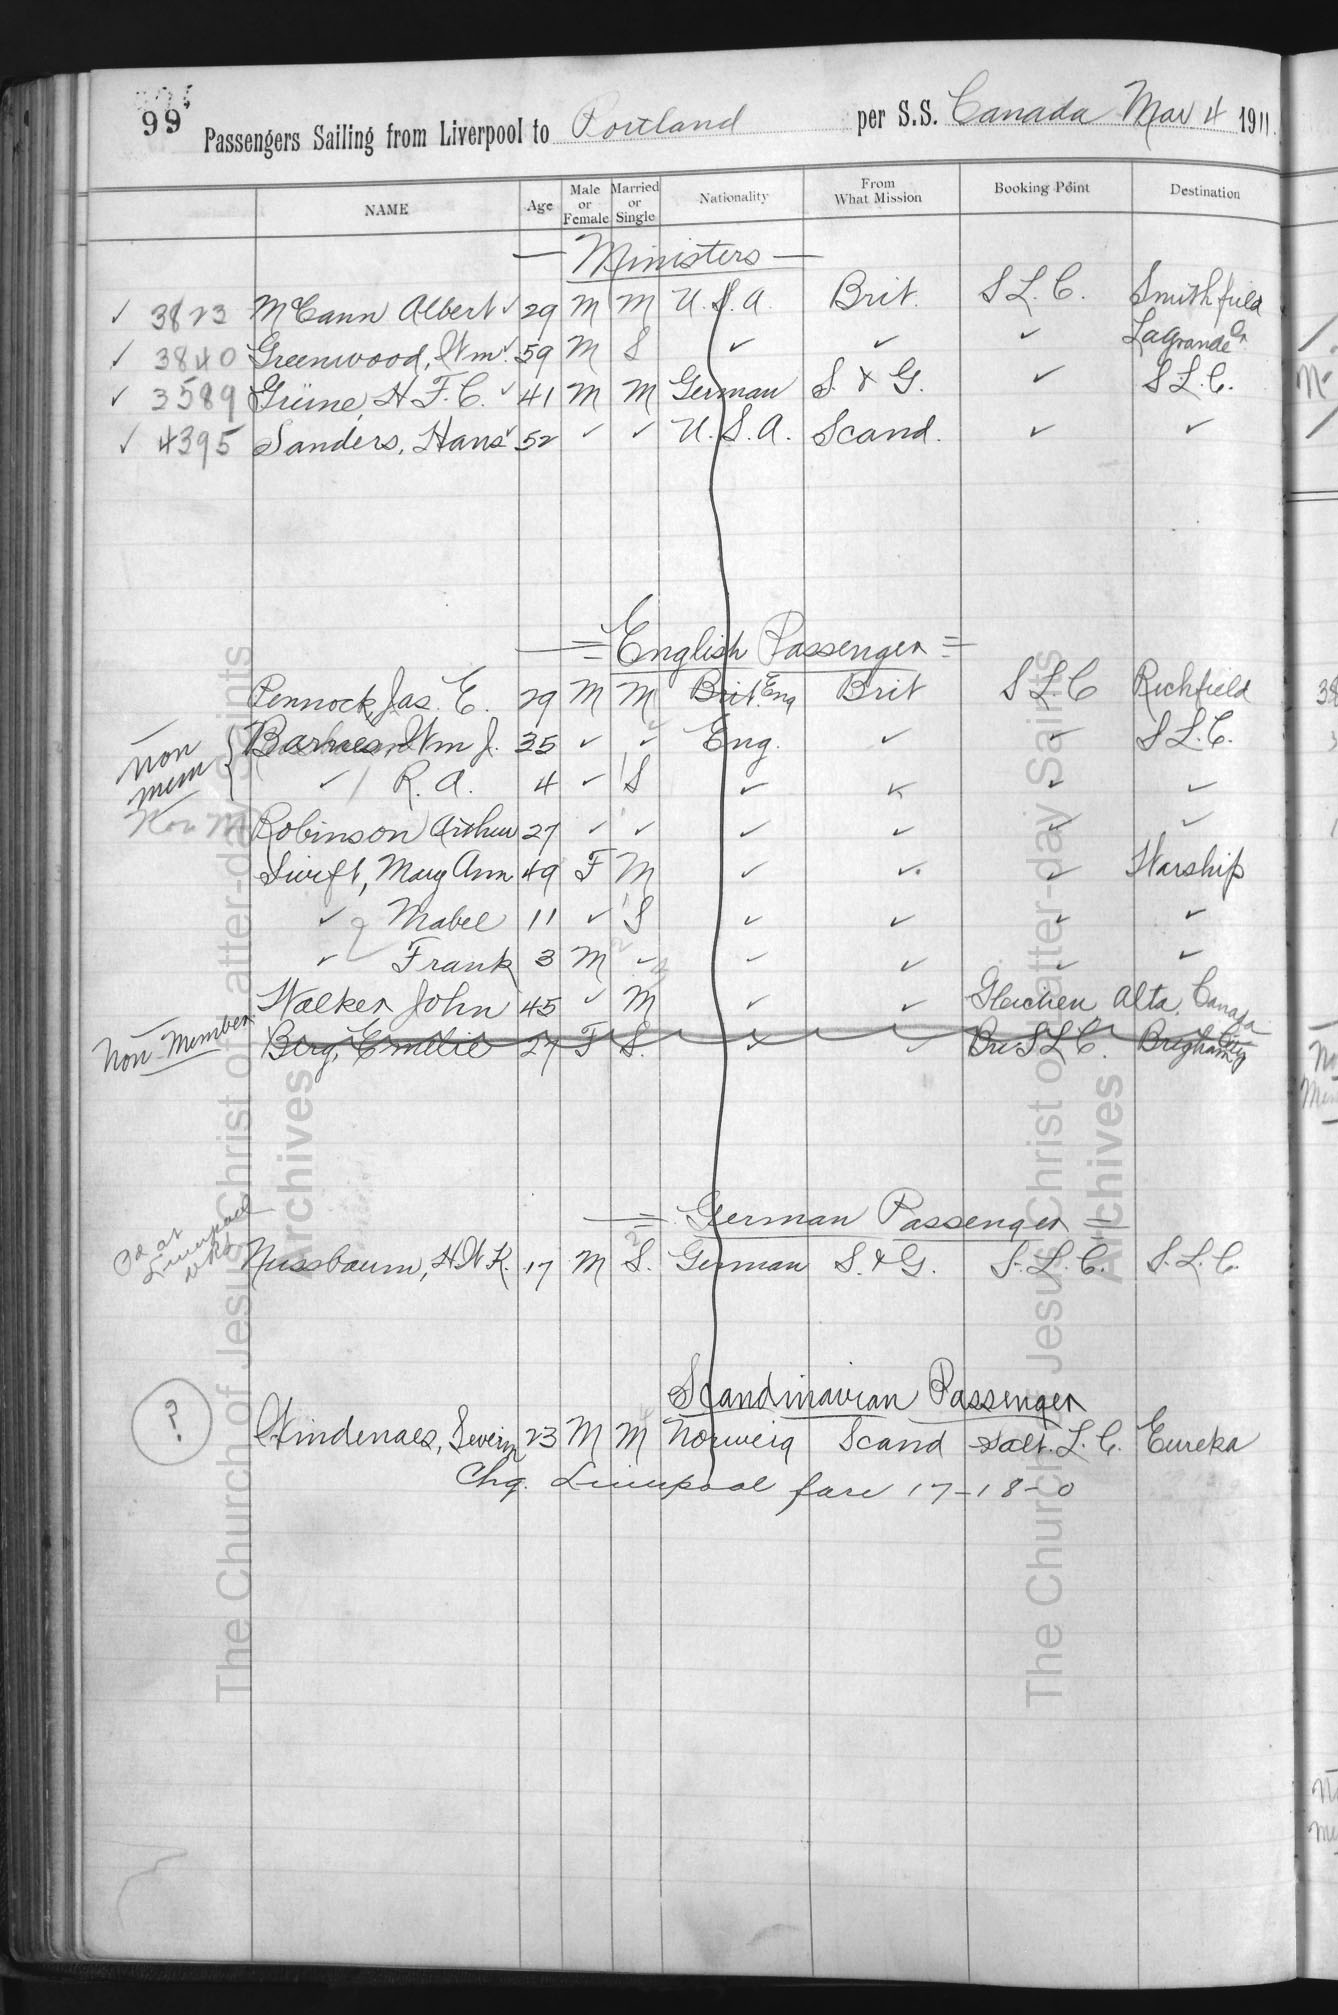 99
Passengers Sailing from Liverpool to Portland per S.S. Canada Mar 4 1911
NAME Age Male or Female Married or Single Nationality From What Mission Booking Point Destination
— Ministers —
✓ 3823 McCann Albert ✓ 29 M M U.S.A. Brit. S L. C. Smithfield
✓ 3840 Greenwood, Wm ✓ 59 M S ✓ ✓ ✓ Lagrande Or
✓ 3589 Grüne, H. F. C. ✓ 41 M M German S. & G. ✓ S L. C.
✓ 4395 Sanders, Hans ✓ 52 ✓ ✓ U.S.A. Scand. ✓ ✓
English Passenger
Pennock, Jas. E. 29 M M Brit. Eng Brit S L C Richfield
Non Mem { Barnes, Wm J. 35 ✓ ✓ Eng. ✓ ✓ S L. C.
✓ R. A. 4 ✓ S ✓ ✓ ✓ ✓
Non M Robinson Arthur 27 ✓ ✓ ✓ ✓ ✓ ✓
Swift, Mary Ann 49 F M ✓ ✓ ✓ Warship
✓ Mabel 11 ✓ S ✓ ✓ ✓ ✓
✓ Frank 3 M ✓ ✓ ✓ ✓ ✓
Walker John 45 ✓ M ✓ ✓ Gleichen Alta. Canada
Non-Member Berg, Emilie 27 F S. ✓ ✓ S L C. Brigham City
German Passenger
Pd at Liverpool
Nussbaum, H.W.K. 17 M S. German S. & G. S. L. C. S. L. C.
Scandinavian Passenger
? Windenaes, Severin 23 M M Norweig Scand Salt. L. C. Eureka
Chg. Liverpool fare 17-18-0
The Church of Jesus Christ of Latter-day Saints
Archives
The Church of Jesus Christ of Latter-day Saints
Archives